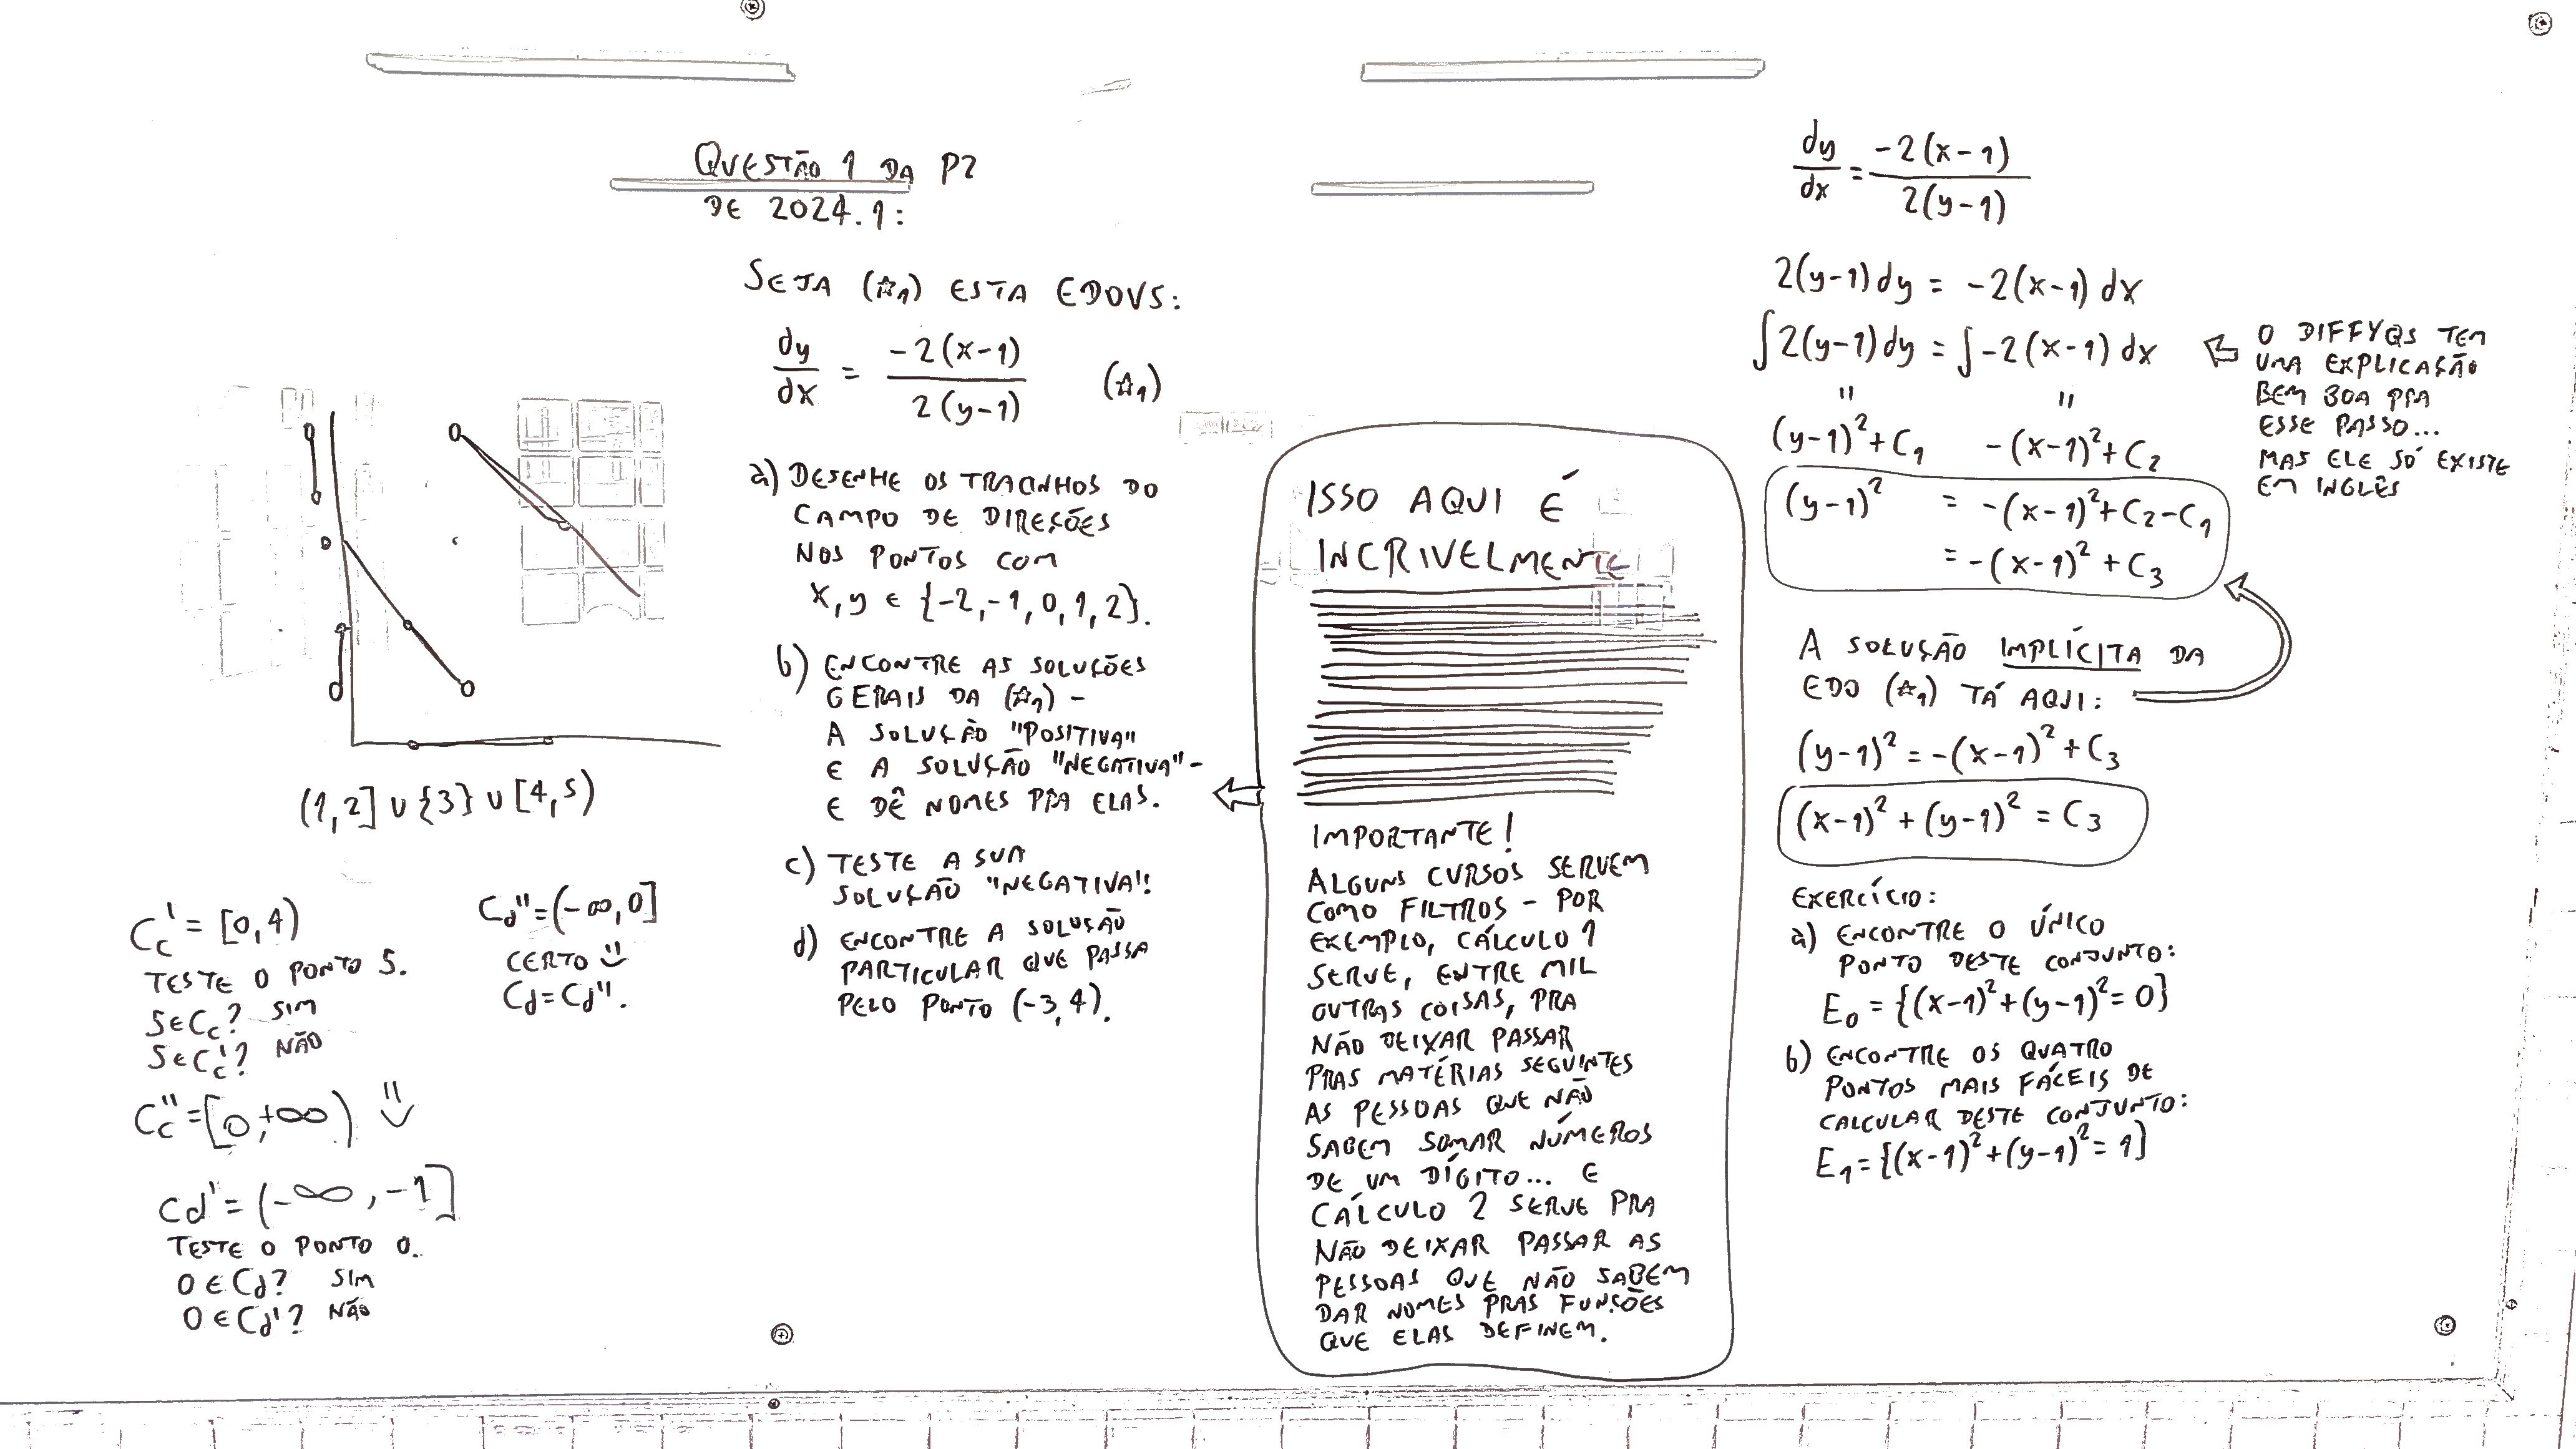 QUESTÃO 1 DA P2
DE 2024.1:
SEJA (☆₁) ESTA EDOVS:
dy/dx = -2(x-1) / 2(y-1) (☆₁)
a) DESENHE OS TRACINHOS DO
CAMPO DE DIREÇÕES
NOS PONTOS COM
x, y ∈ {-2, -1, 0, 1, 2}.
b) ENCONTRE AS SOLUÇÕES
GERAIS DA (☆₁) -
A SOLUÇÃO "POSITIVA"
E A SOLUÇÃO "NEGATIVA" -
E DÊ NOMES PRA ELAS.
c) TESTE A SUA
SOLUÇÃO "NEGATIVA"!
d) ENCONTRE A SOLUÇÃO
PARTICULAR QUE PASSA
PELO PONTO (-3,4).
(1,2] ∪ {3} ∪ [4,5)
Cc' = [0,4)
TESTE O PONTO 5.
5∈Cc? SIM
5∈Cc'? NÃO
Cc'' = [0,+∞)
Cd' = (-∞,-1]
TESTE O PONTO 0.
0∈Cd? SIM
0∈Cd'? NÃO
Cd'' = (-∞,0]
CERTO
Cd = Cd''.
ISSO AQUI É
INCRIVELMENTE
IMPORTANTE!
ALGUNS CURSOS SERVEM
COMO FILTROS - POR
EXEMPLO, CÁLCULO 1
SERVE, ENTRE MIL
OUTRAS COISAS, PRA
NÃO DEIXAR PASSAR
PRAS MATÉRIAS SEGUINTES
AS PESSOAS QUE NÃO
SABEM SOMAR NÚMEROS
DE UM DÍGITO... E
CÁLCULO 2 SERVE PRA
NÃO DEIXAR PASSAR AS
PESSOAS QUE NÃO SABEM
DAR NOMES PRAS FUNÇÕES
QUE ELAS DEFINEM.
dy/dx = -2(x-1) / 2(y-1)
2(y-1)dy = -2(x-1)dx
∫2(y-1)dy = ∫-2(x-1)dx
= =
(y-1)²+C₁ -(x-1)²+C₂
(y-1)² = -(x-1)²+C₂-C₁
= -(x-1)²+C₃
O DIFFYQS TEM
UMA EXPLICAÇÃO
BEM BOA PRA
ESSE PASSO...
MAS ELE SÓ EXISTE
EM INGLÊS
A SOLUÇÃO IMPLÍCITA DA
EDO (☆₁) TÁ AQUI:
(y-1)² = -(x-1)²+C₃
(x-1)²+(y-1)² = C₃
EXERCÍCIO:
a) ENCONTRE O ÚNICO
PONTO DESTE CONJUNTO:
E₀ = {(x-1)²+(y-1)²=0}
b) ENCONTRE OS QUATRO
PONTOS MAIS FÁCEIS DE
CALCULAR DESTE CONJUNTO:
E₁ = {(x-1)²+(y-1)²=1}